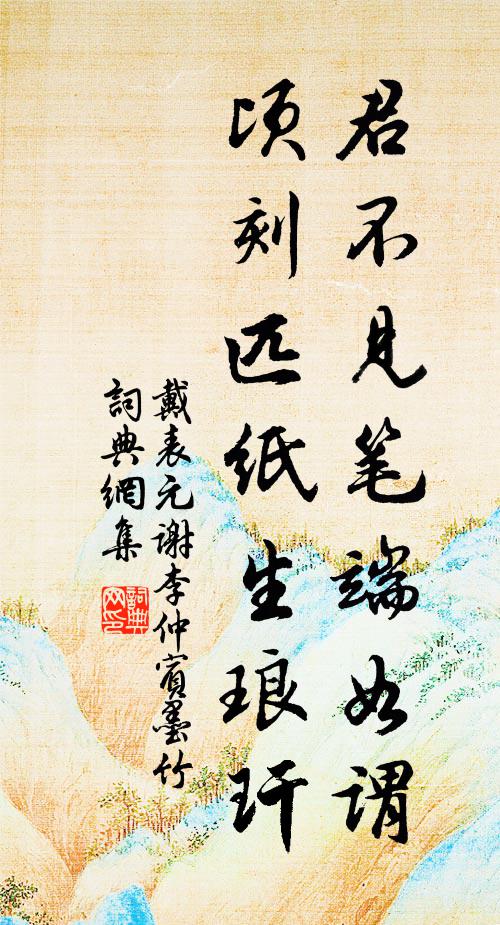 君不见笔端如谓
顷刻匹纸生琅玕
戴表元谢李仲宾墨竹
詞典網集
詞典网印